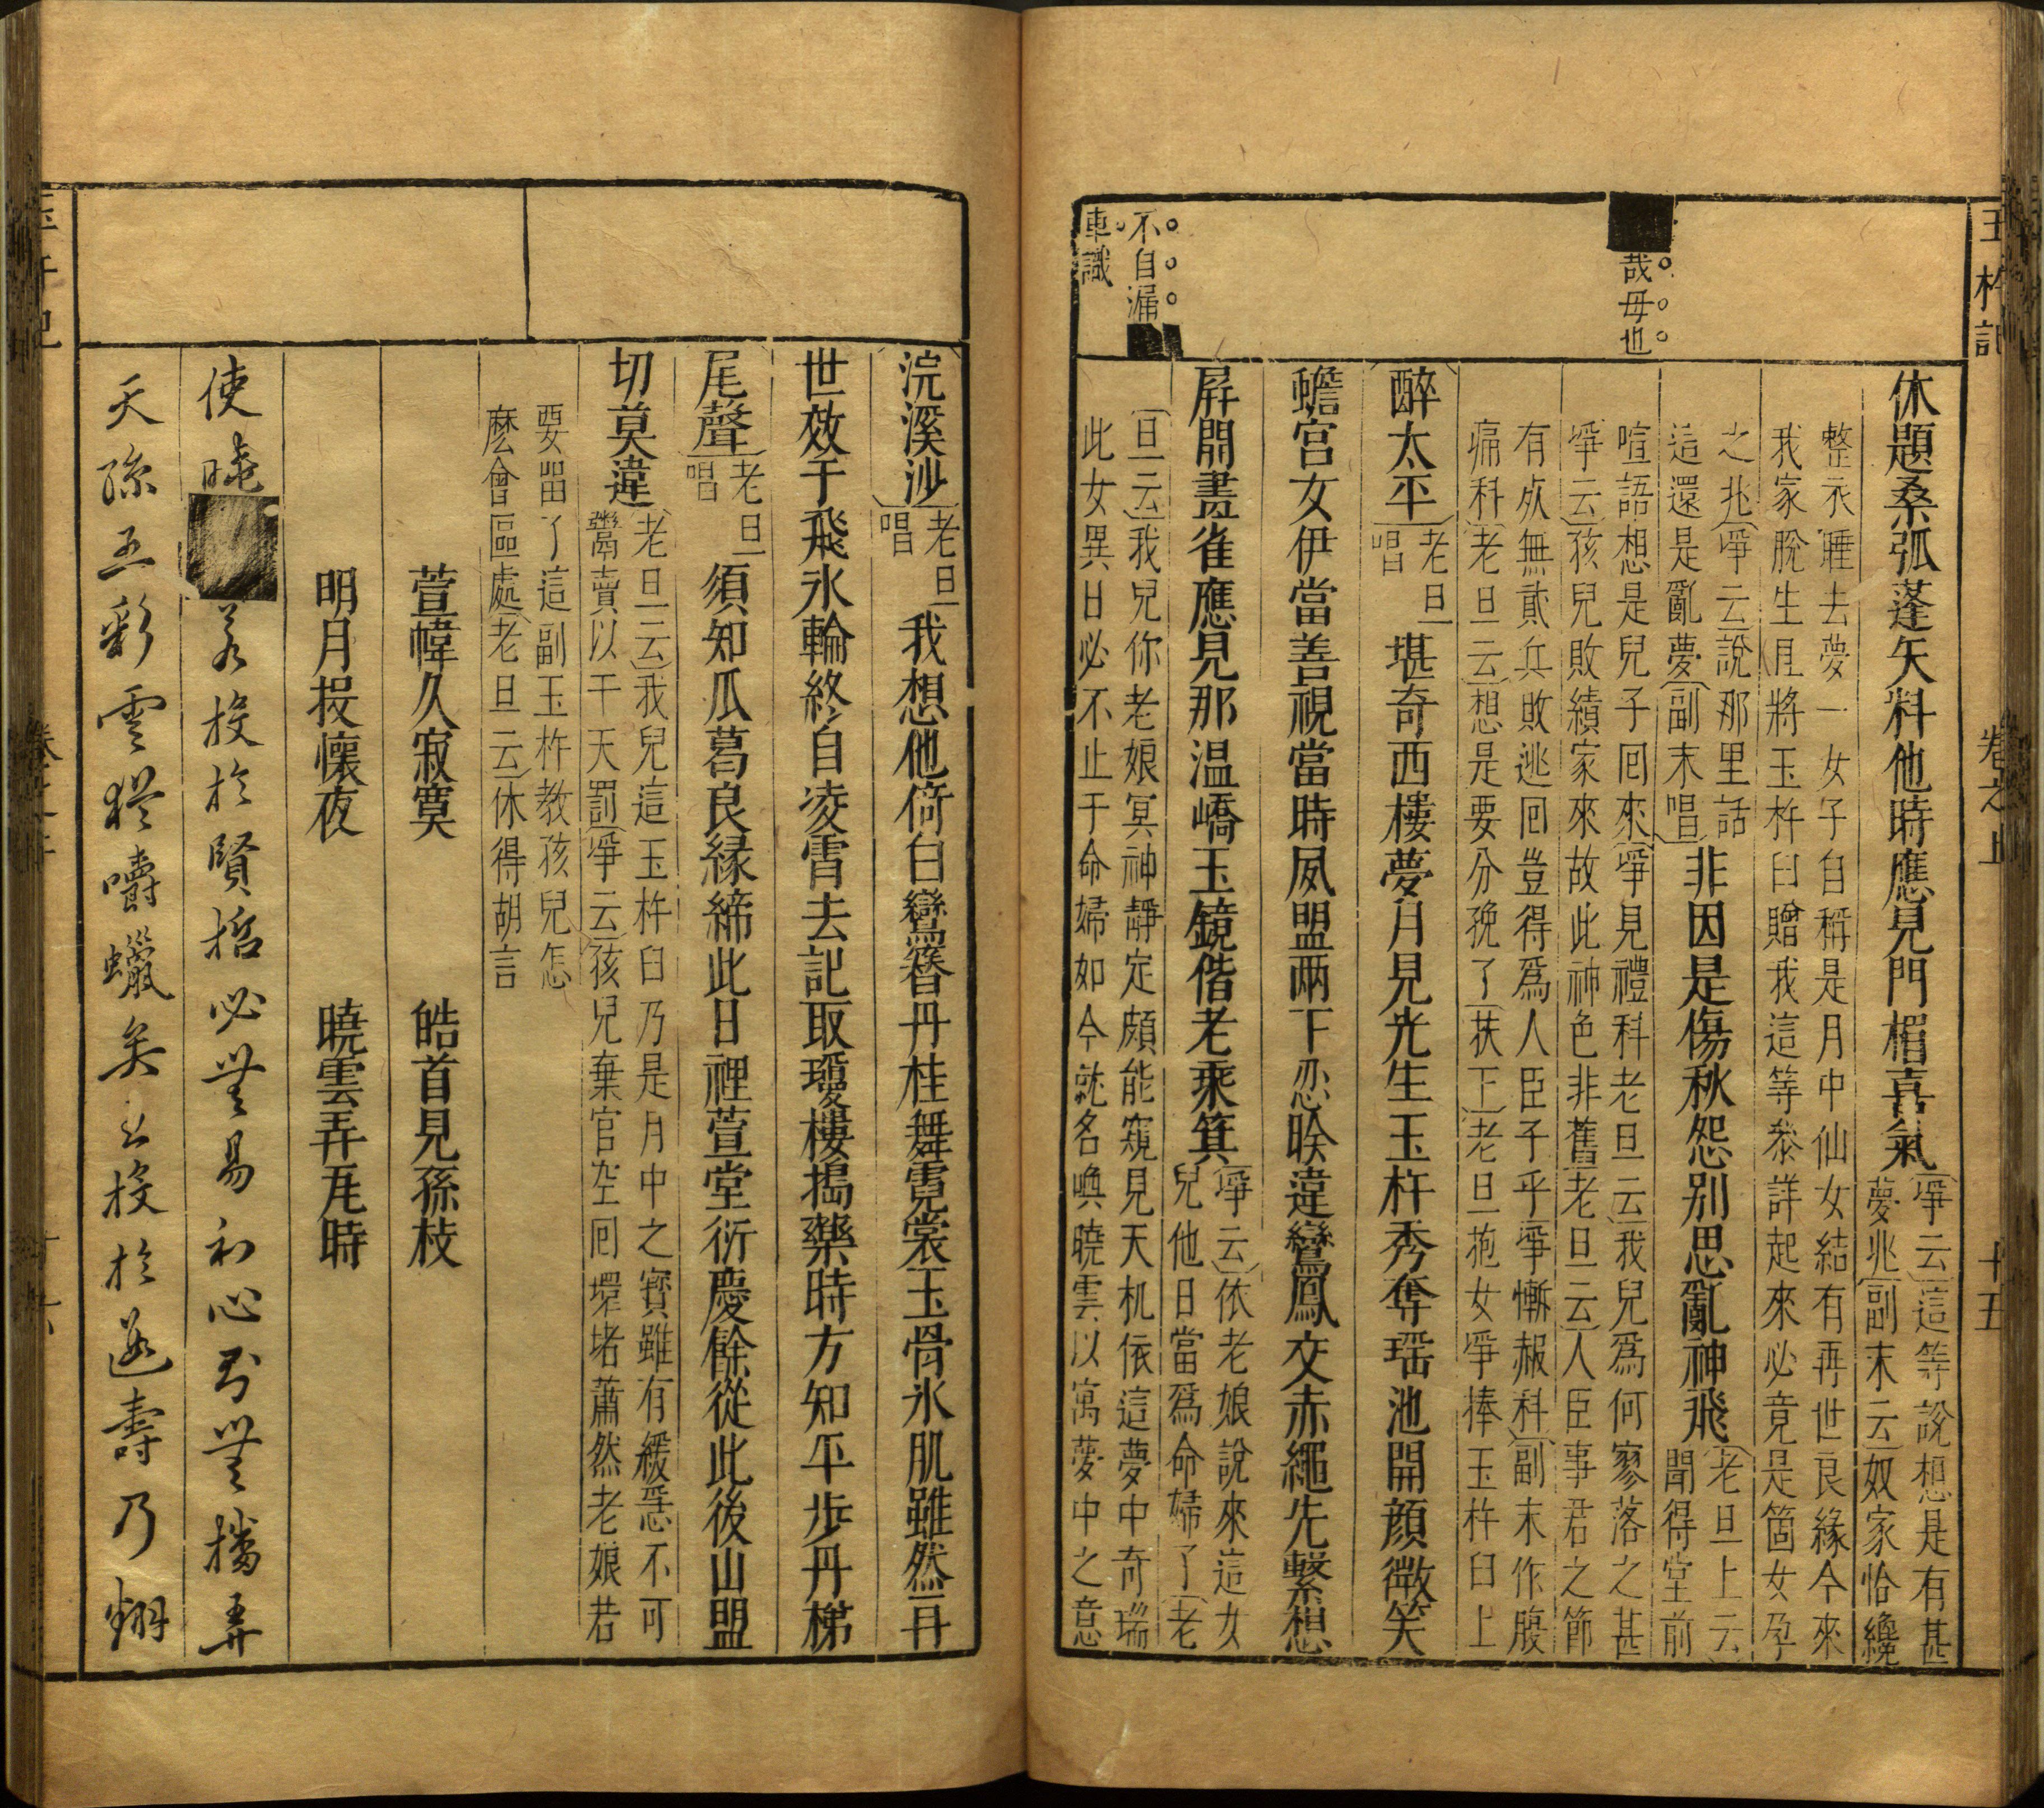 玉杵記
卷之上
十五
哉毋也
不自漏
車識
休題桑弧蓬矢料他時應見門楣喜氣
〔淨云〕這等說想是有甚
夢兆〔副末云〕奴家恰纔
整衣睡去夢一女子自稱是月中仙女結有再世良緣今來
我家脫生且將玉杵臼贈我這等叅詳起來必竟是箇女孕
之兆〔淨云〕說那里話
這還是亂夢〔副末唱〕
非因是傷秋怨别思亂神飛
〔老旦上云〕
聞得堂前
喧語想是兒子囘來〔淨見禮科老旦云〕我兒爲何寥落之甚
〔淨云〕孩兒敗績家來故此神色非舊〔老旦云〕人臣事君之節
有死無貳兵敗逃囘豈得爲人臣子乎〔淨慚赧科〕〔副末作腹
痛科〕〔老旦云〕想是要分娩了〔扶下〕〔老旦抱女淨捧玉杵臼上
醉太平〔老旦唱〕堪奇西樓夢月見光生玉杵秀奪瑶池開顔微笑
蟾宮女伊當善視當時夙盟两下忍睽違鸞鳳交赤繩先繫想
屛開畫雀應見那温嶠玉鏡偕老乘箕
〔淨云〕依老娘說來這女
兒他日當爲命婦了〔老
旦云〕我兒你老娘冥神靜定頗能窺見天机依這夢中奇瑞
此女異日必不止于命婦如今就名喚曉雲以寓夢中之意
浣溪沙〔老旦唱〕我想他倚白鸞簪丹桂舞霓裳玉骨氷肌雖然再
世效于飛氷輪終自凌霄去記取瓊樓搗藥時方知平步丹梯
尾聲〔老旦唱〕須知瓜葛良縁締此日裡萱堂衍慶餘從此後山盟
切莫違
〔老旦云〕我兒這玉杵臼乃是月中之寳雖有緩急不可
鬻賣以干天罰〔淨云〕孩兒棄官空囘環堵蕭然老娘若
要畱了這副玉杵教孩兒怎
麽會區處〔老旦云〕休得胡言
萱幃久寂寞　皓首見孫枝
明月投懷夜　曉雲弄瓦時
使曉　若投於賢哲必無易初心爲無播弄
天孫五彩雲猶嚼蠟矣　投於　壽乃